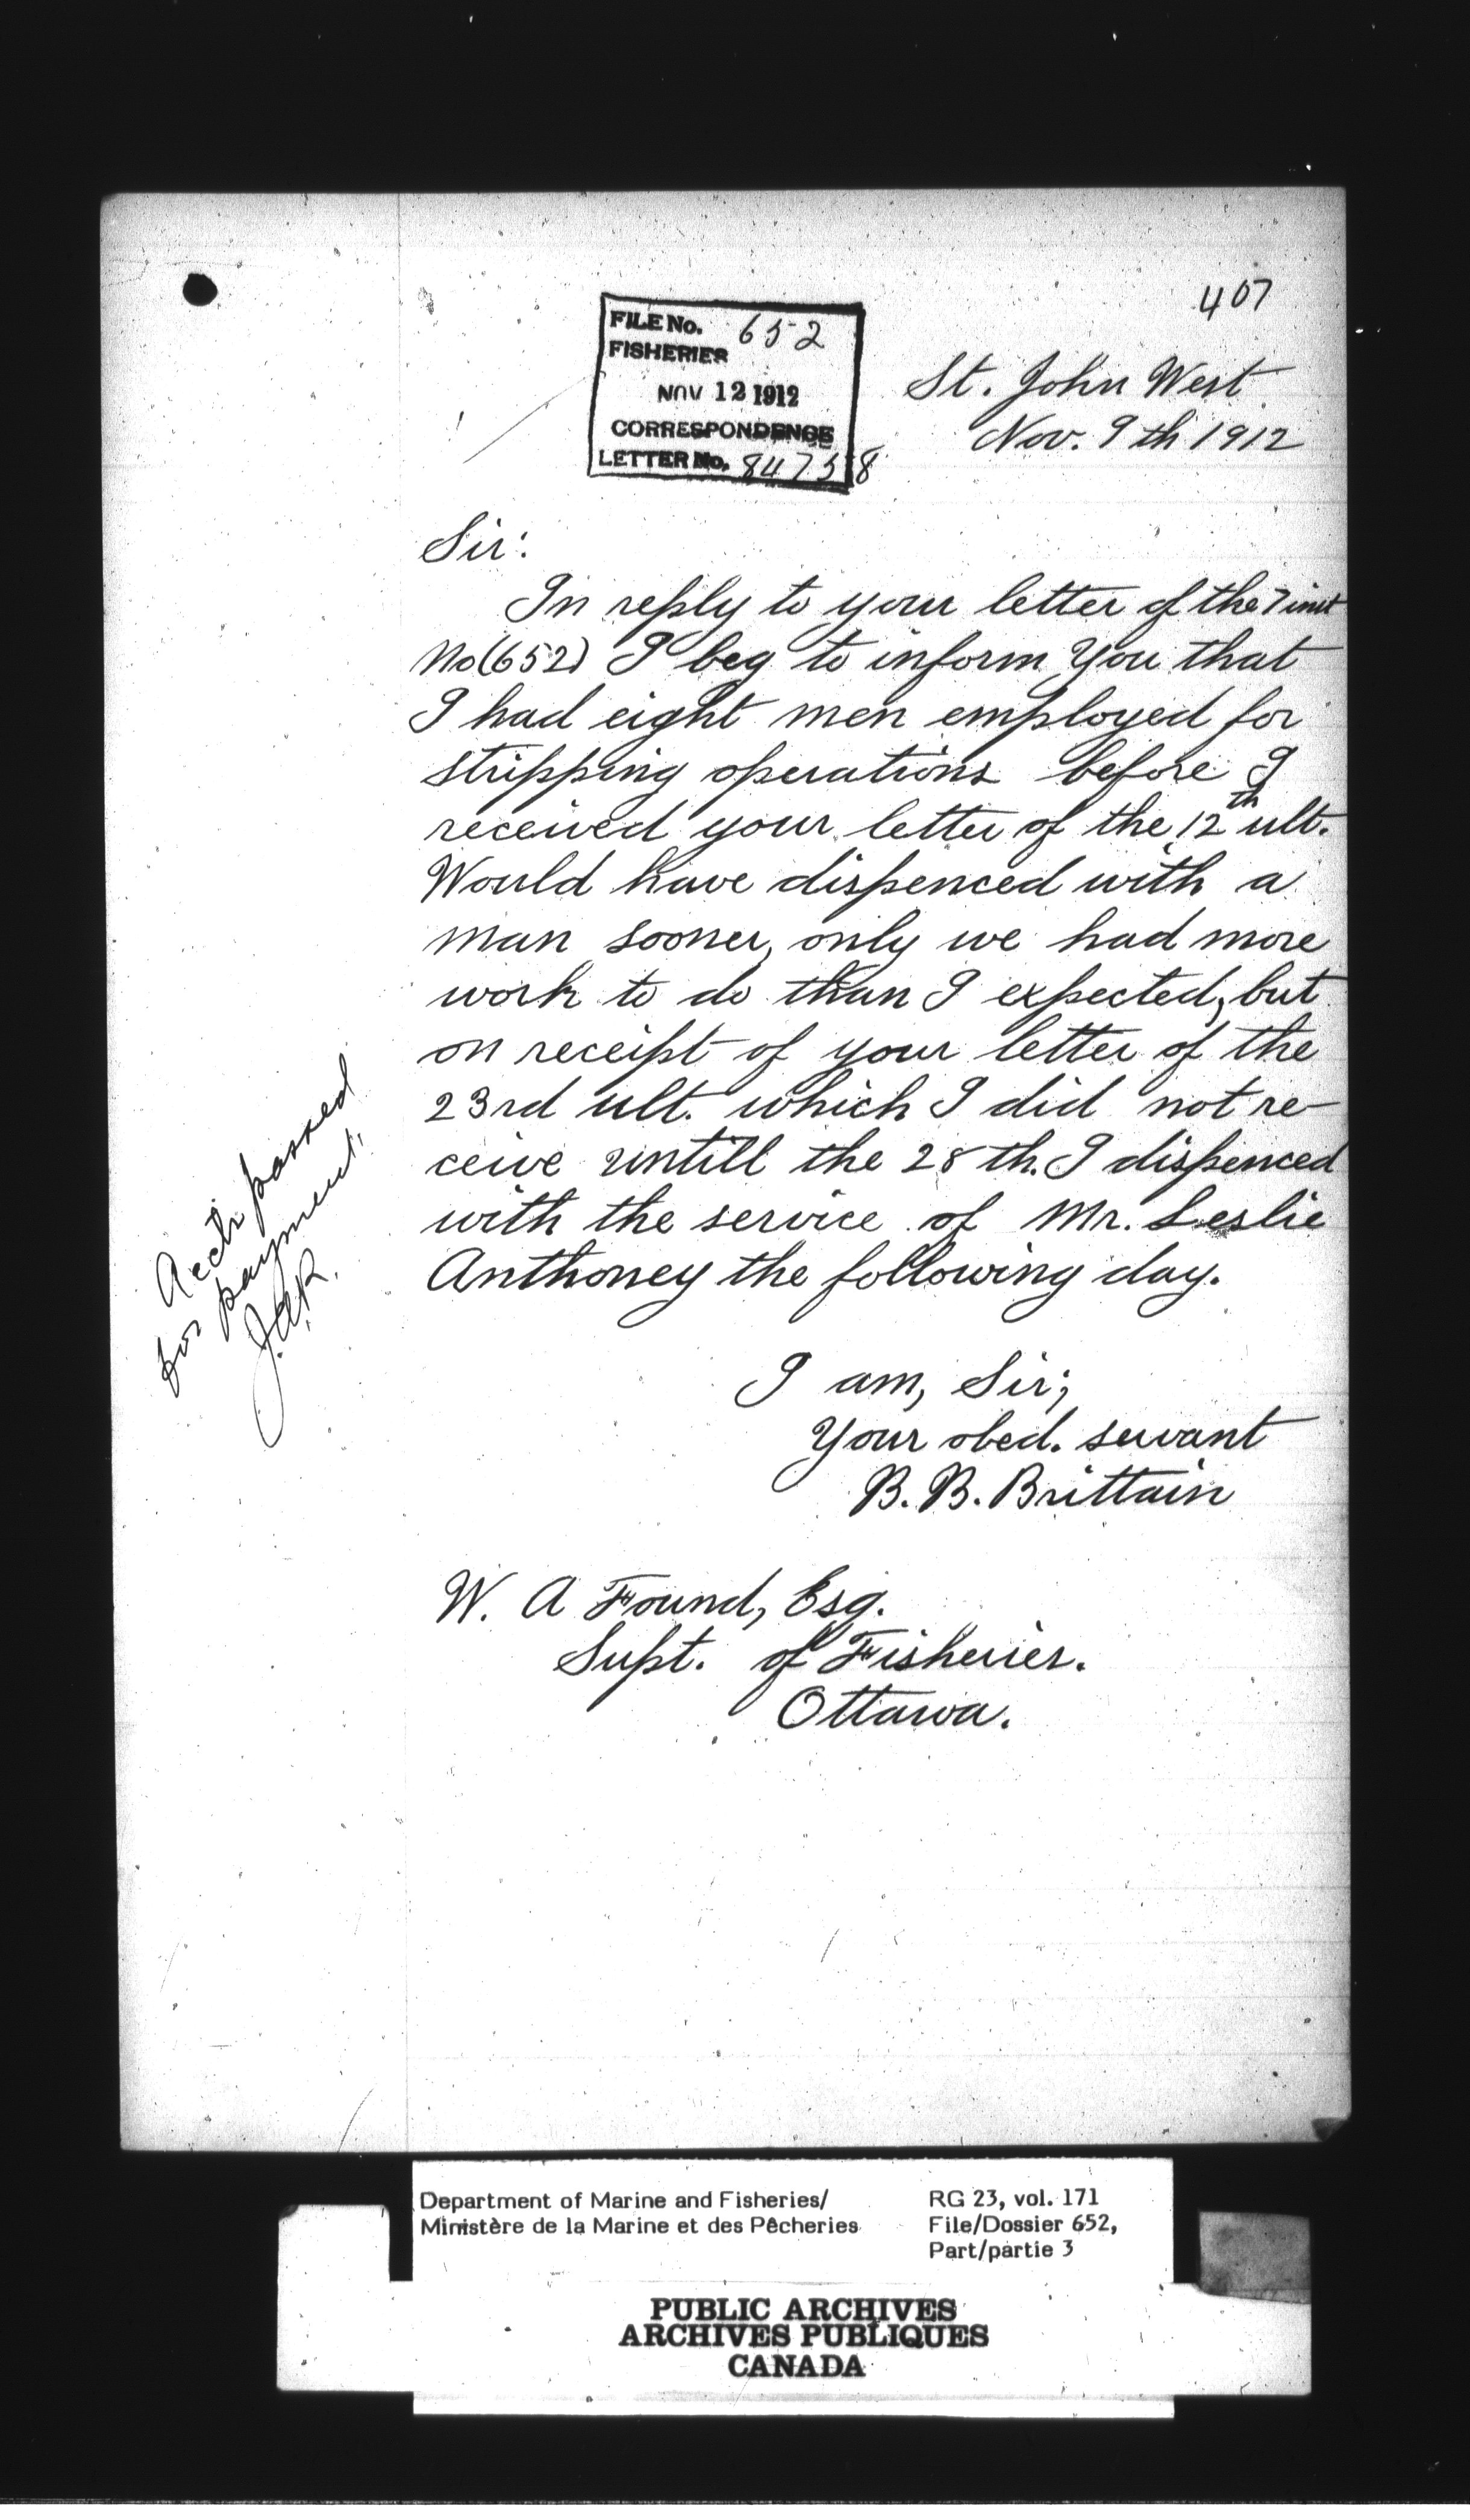 407
FILE No. 652
FISHERIES
NOV 12 1912
CORRESPONDENCE
LETTER No. 84758
St. John West
Nov. 9th 1912
Sir:
In reply to your letter of the 7 inst
No(652) I beg to inform you that
I had eight men employed for
stripping operations before I
received your letter of the 12th ult.
Would have dispenced with a
man sooner, only we had more
work to do than I expected, but
on receipt of your letter of the
23rd ult. which I did not re-
ceive untill the 28th. I dispenced
with the service of Mr. Leslie
Anthoney the following day.
I am, Sir;
Your obed. servant
B. B. Brittain
W. A Found, Esq.
Supt. of Fisheries.
Ottawa.
Acct. passed
for payment.
J.A.R.
Department of Marine and Fisheries/
Ministère de la Marine et des Pêcheries
RG 23, vol. 171
File/Dossier 652,
Part/partie 3
PUBLIC ARCHIVES
ARCHIVES PUBLIQUES
CANADA